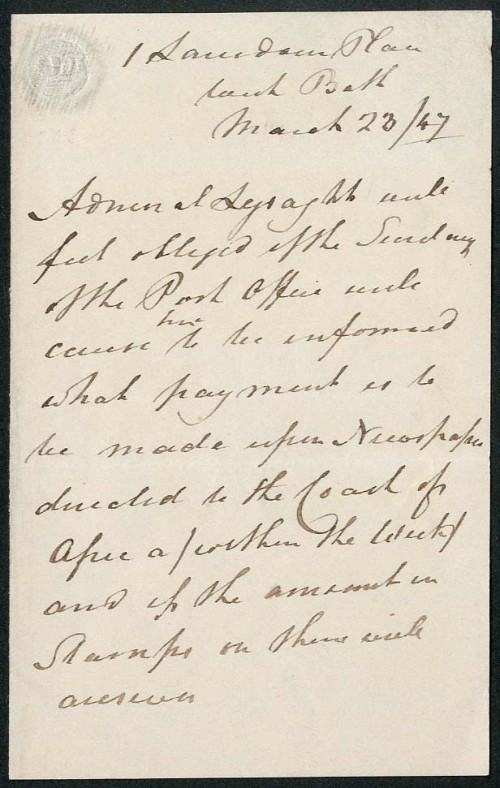 1 Lansdown Place
West Bath
March 23/47
Admiral Lysaght will
feel obliged if the Secretary
of the Post Office will
cause him to be informed
what payment is to
be made upon Newspapers
directed to the Coast of
Africa (within the Week)
and if the amount in
Stamps on them will
answer